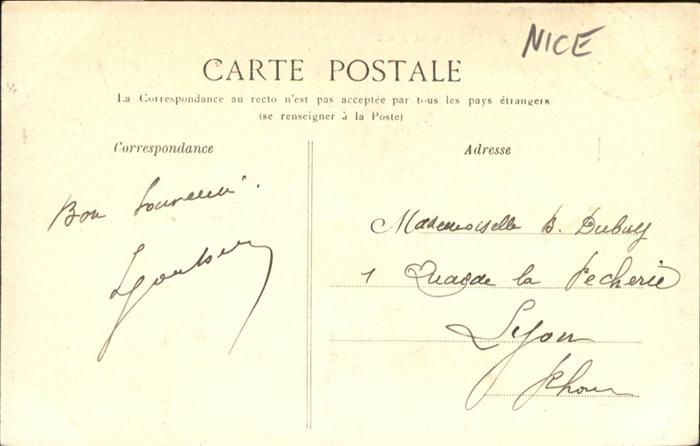 NICE
CARTE POSTALE
La Correspondance au recto n'est pas acceptée par tous les pays étrangers
(se renseigner à la Poste)
Correspondance
Adresse
Bon Souvenir.
Mademoiselle B. Dubuy
1 Quai de la Pecherie
Lyon
Rhone